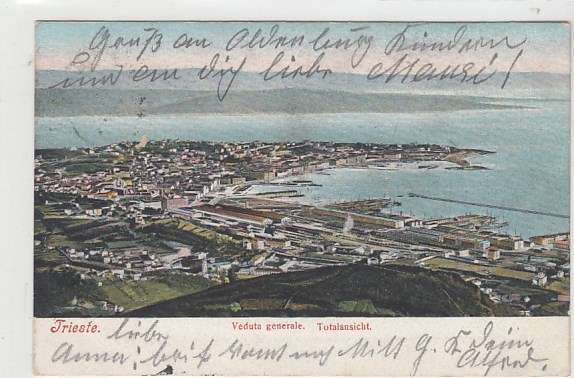 Gruß an Oldenburg Kindern
und an dich liebe Mausi!
Trieste.
Veduta generale. Totalansicht.
liebe
Anna; brief kommt nach G. K Dein
Alfred.